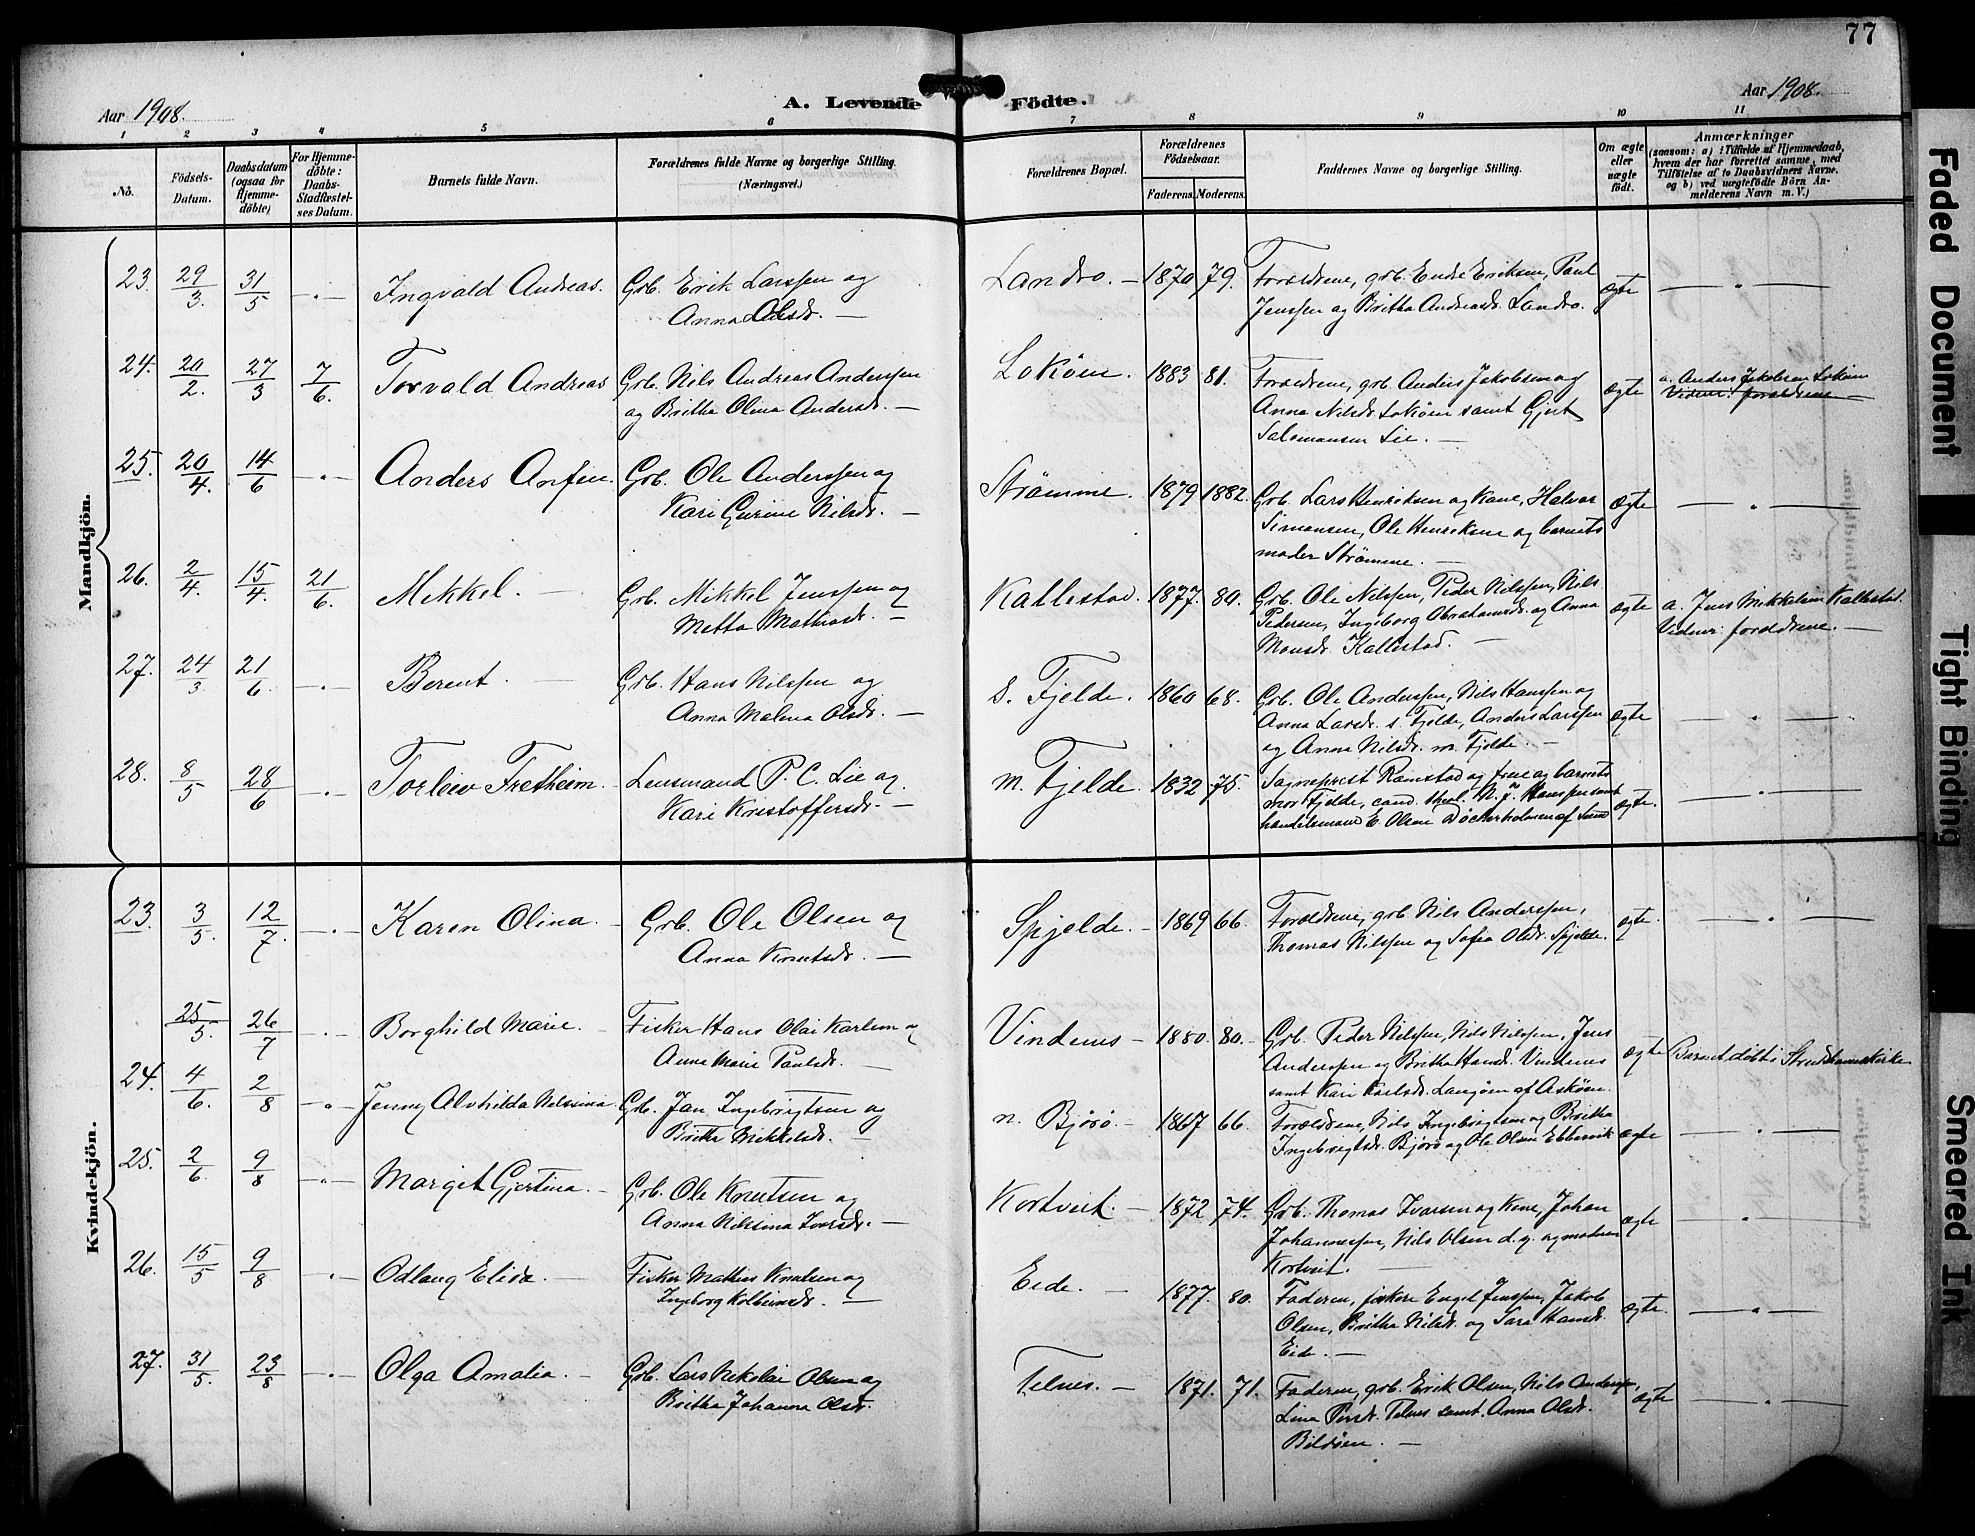 77
Aar 1908.
A. Levende Födte.
Aar 1908.
1 2 3 4 5 6 7 8 9 10 11
No.
Födsels-Datum.
Daabsdatum (ogsaa for Hjemme-döbte)
For Hjemme-döbte: Daabs-Stadfæstel-ses Datum.
Barnets fulde Navn.
Forældrenes fulde Navne og borgerlige Stilling. (Næringsvei.)
Forældrenes Bopæl.
Forældrenes Födselsaar.
Faderens. Moderens.
Faddernes Navne og borgerlige Stilling.
Om ægte eller uægte födt.
Anmærkninger
(saasom: a) i Tilfælde af Hjemmedaab, hvem der har forrettet samme, med Tilföielse af to Daabsvidners Navne, og b) ved uægtefödte Börn An-melderens Navn m. V.)
Mandkjön.
23. 29/3. 31/5 - " - Ingvald Andreas. Grb. Erik Larssen og
Anna Olsdr. —
Landro. — 1870 79. Forældrene, grb. Ende Eriksen, Paul
Jenssen og Britha Andreasdr. Landro. ægte — " —
24. 20/2. 27/3 7/6. Torvald Andreas Grb. Nils Andreas Anderssen
og Britha Olina Andersdr. —
Lokøen. 1883 81. Forældrene, grb. Anders Jakobsen og
Anna Nilsdr. Lokøen samt Gjert
Salomonsen Lie. — ægte a. Anders Jakobsen Lokøen
Vidner: forældrene —
25. 20/4. 14/6 - " - Anders Anfin. Grb. Ole Anderssen og
Kari Gurine Nilsdr. —
Strømme. 1879 1882. Grb. Lars Henriksen og Kone, Halvor
Simonsen, Ole Henriksen og barnets
moder Strømme. — ægte — " —
26. 2/4. 15/4. 21/6. Mikkel. — Grb. Mikkel Jenssen og
Metta Mathiasdr. —
Kallestad. 1877. 80. Grb. Ole Nilssen, Peder Nilssen, Nils
Pedersen, Ingeborg Abrahamsdr. og Anna
Monsdr. Kallestad. — ægte a. Jens Mikkelsen Kallestad.
Vidner: forældrene. —
27. 24/3 21/6. - " - Berent. — Grb. Hans Nilssen og
Anna Malena Olsdr. —
s. Fjelde. 1860 68. Grb. Ole Anderssen, Nils Hanssen og
Anna Larsdr. s. Fjelde, Anders Larssen
og Anna Nilsdr. m. Fjelde. — ægte — " —
28. 8/5 28/6 - " - Torleiv Fretheim. Lensmand P. C. Lie og
Kari Kristoffersdr. —
m. Fjelde. 1832 75. Sogneprest Ramstad og frue og barnets
mor Fjelde, cand. theol. N. J. Hanssen samt
handelsmand E. Olsen Döckerholmen af Sund ægte. — " —
Kvindekjön.
23. 3/5. 12/7. - " - Karen Olina. — Grb. Ole Olsen og
Anna Knutsdr. —
Spjelde. — 1869 66. Forældrene, grb. Nils Anderssen,
Thomas Nilssen og Sofia Olsdr. Spjelde. ægte. — " —
25/5. 26/7 - " - Borghild Marie. — Fisker Hans Olai Karlsen og
Anne Marie Paulsdr. —
Vindenes — 1880. 80. Grb. Peder Nilssen, Nils Nilssen, Jens
Anderssen og Britha Hansdr. Vindenes
samt Kari Karlsdr. Langøen af Askøen. ægte Barnet döbt i Strudshavns kirke
24. 4/6. 2/8 - " - Jenny Alvhilda Nilssina. Grb. Jan Ingebrigtsen og
Britha Mikkelsdr. —
n. Bjorø. — 1867 66. Forældrene, Nils Ingebrigtsen og Britha
Ingebrigtsdr. Bjorø og Ole Olsen Ebbesvik ægte — " —
25. 2/6. 9/8 - " - Margit Gjertina. — Grb. Ole Knutsen og
Anna Nilsina Ivarsdr. —
Kortveit. — 1872 74. Grb. Thomas Ivarsen og Kone, Johan
Johannessen, Nils Olsen d. y. og moderen
Kortveit. — ægte — " —
26. 15/5 9/8 - " - Odlaug Elida. — Fisker Mathias Knutsen og
Ingeborg Kolbeinsdr. —
Eide. — 1877. 80. Faderen, fiskere Engel Jenssen, Jakob
Olsen, Britha Nilsdr. og Sara Hansdr.
Eide. — ægte. — " —
27. 31/5. 23/8 - " - Olga Amalia. — Grb. Lars Nikolai Olsen og
Britha Johanna Olsdr.
Telnes. — 1871. 71. Faderen, grb. Erik Olsen, Nils Anderssen,
Lina Persdr. Telnes samt Anna Olsdr.
Bildøen. — ægte — " —
Faded Document
Tight Binding
Smeared Ink